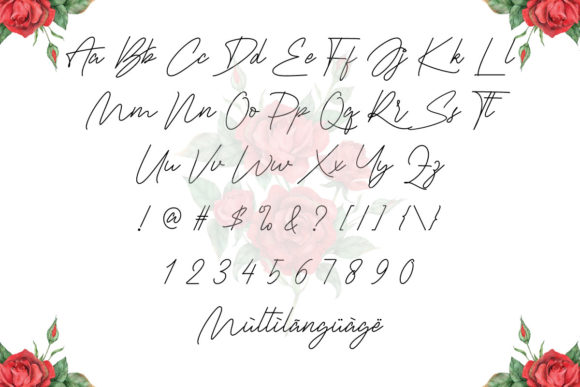 Aa Bb Cc Dd Ee Ff Jj Kk Ll
Mm Nn Oo Pp Qq Rr Ss Tt
Uu Vv Ww Xx Yy Zz
! @ # $ % & ? [ / ] { \ }
1 2 3 4 5 6 7 8 9 0
Mùltìlāngüàgë